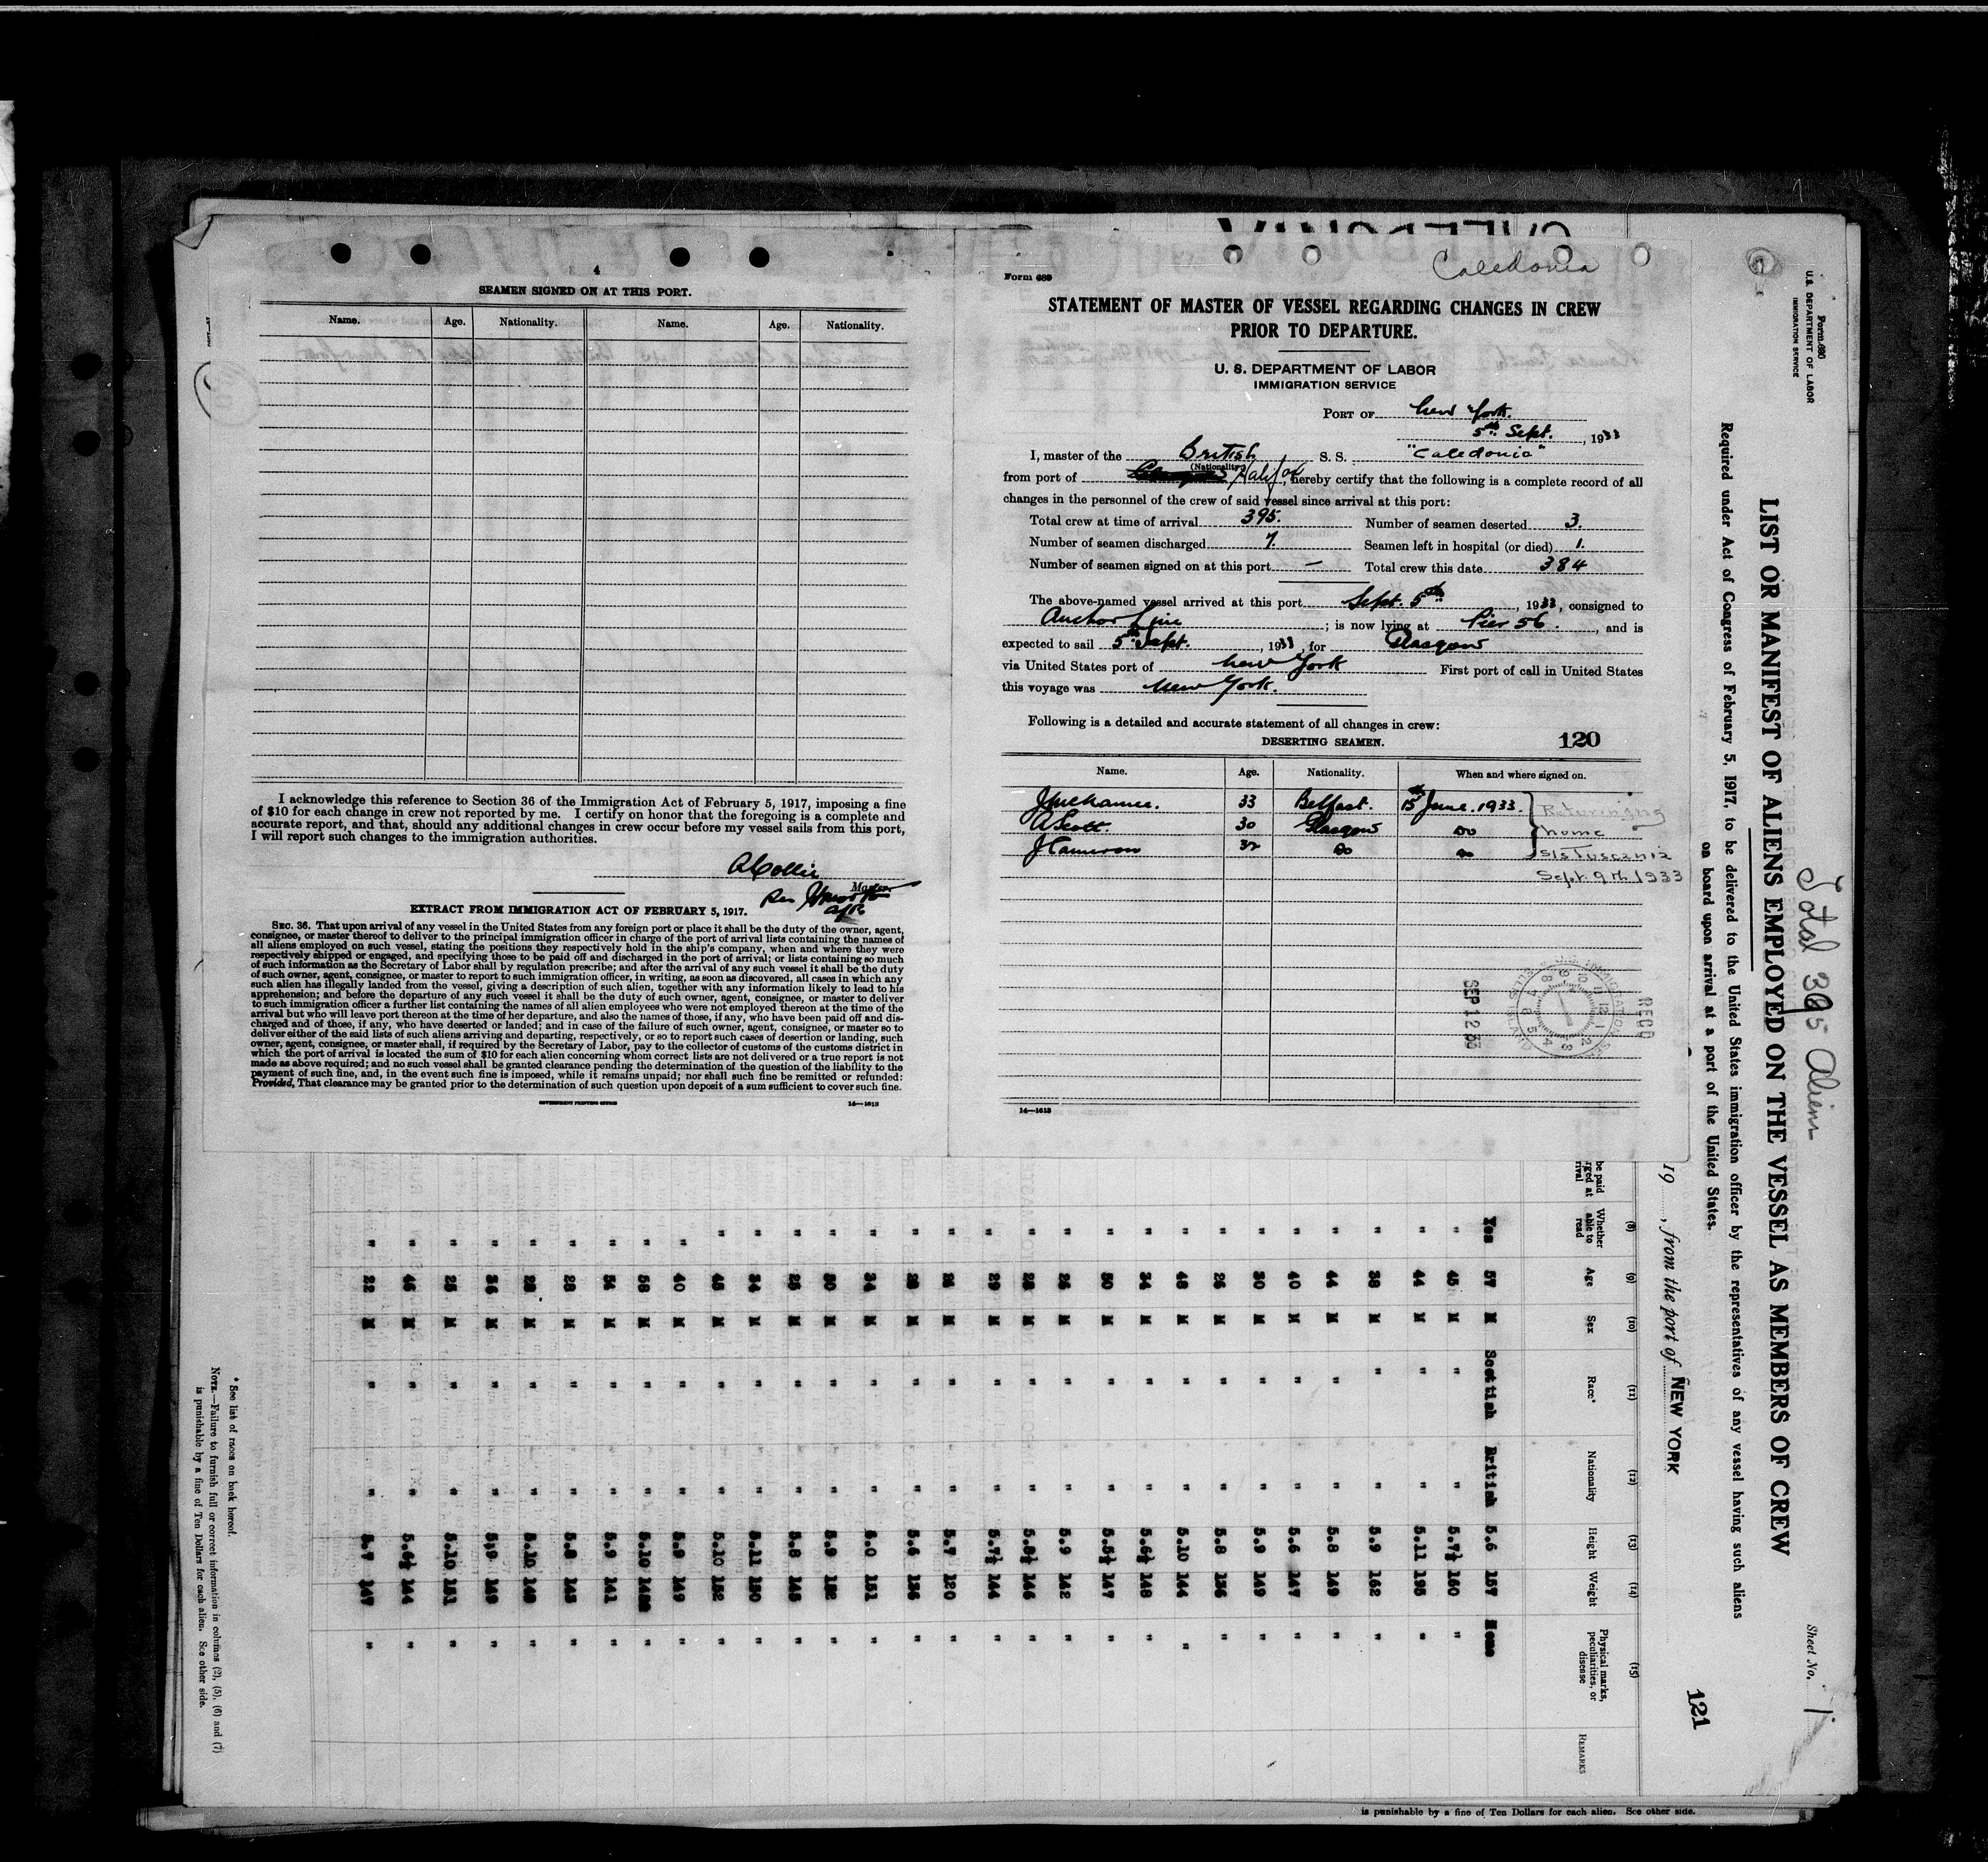 4
SEAMEN SIGNED ON AT THIS PORT.
Name. Age. Nationality. Name. Age. Nationality.
I acknowledge this reference to Section 36 of the Immigration Act of February 5, 1917, imposing a fine
of $10 for each change in crew not reported by me. I certify on honor that the foregoing is a complete and
accurate report, and that, should any additional changes in crew occur before my vessel sails from this port,
I will report such changes to the immigration authorities.
A Collie
Master.
EXTRACT FROM IMMIGRATION ACT OF FEBRUARY 5, 1917.
SEC. 36. That upon arrival of any vessel in the United States from any foreign port or place it shall be the duty of the owner, agent,
consignee, or master thereof to deliver to the principal immigration officer in charge of the port of arrival lists containing the names of
all aliens employed on such vessel, stating the positions they respectively hold in the ship's company, when and where they were
respectively shipped or engaged, and specifying those to be paid off and discharged in the port of arrival; or lists containing so much
of such information as the Secretary of Labor shall by regulation prescribe; and after the arrival of any such vessel it shall be the duty
of such owner, agent, consignee, or master to report to such immigration officer, in writing, as soon as discovered, all cases in which any
such alien has illegally landed from the vessel, giving a description of such alien, together with any information likely to lead to his
apprehension; and before the departure of any such vessel it shall be the duty of such owner, agent, consignee, or master to deliver
to such immigration officer a further list containing the names of all alien employees who were not employed thereon at the time of the
arrival but who will leave port thereon at the time of her departure, and also the names of those, if any, who have been paid off and dis-
charged and of those, if any, who have deserted or landed; and in case of the failure of such owner, agent, consignee, or master so to
deliver either of the said lists of such aliens arriving and departing, respectively, or so to report such cases of desertion or landing, such
owner, agent, consignee, or master shall, if required by the Secretary of Labor, pay to the collector of customs of the customs district in
which the port of arrival is located the sum of $10 for each alien concerning whom correct lists are not delivered or a true report is not
made as above required; and no such vessel shall be granted clearance pending the determination of the question of the liability to the
payment of such fine, and, in the event such fine is imposed, while it remains unpaid; nor shall such fine be remitted or refunded:
Provided, That clearance may be granted prior to the determination of such question upon deposit of a sum sufficient to cover such fine.
GOVERNMENT PRINTING OFFICE 14—1613
Caledonia
Form 689
STATEMENT OF MASTER OF VESSEL REGARDING CHANGES IN CREW
PRIOR TO DEPARTURE.
U. S. DEPARTMENT OF LABOR
IMMIGRATION SERVICE
PORT OF New York.
5th Sept. , 1933
I, master of the British S. S. "Caledonia"
(Nationality)
from port of Halifax, hereby certify that the following is a complete record of all
changes in the personnel of the crew of said vessel since arrival at this port:
Total crew at time of arrival 395. Number of seamen deserted 3.
Number of seamen discharged 7. Seamen left in hospital (or died) 1.
Number of seamen signed on at this port — Total crew this date 384
The above-named vessel arrived at this port Sept. 5th , 1933, consigned to
Anchor Line ; is now lying at Pier 56. , and is
expected to sail 5th Sept. , 1933, for Glasgow
via United States port of New York First port of call in United States
this voyage was New York.
Following is a detailed and accurate statement of all changes in crew:
DESERTING SEAMEN. 120
Name. Age. Nationality. When and where signed on.
33 Belfast. 15th June. 1933. Returning
A Scott. 30 Glasgow Do home
J Cameron 32 Do Do S/S Tuscania
Sept. 9th 1933
REC'D
SEP 12 33
14—1613
Form 690
U.S. DEPARTMENT OF LABOR
IMMIGRATION SERVICE
Total 395 Aliens
Sheet No. 1
LIST OR MANIFEST OF ALIENS EMPLOYED ON THE VESSEL AS MEMBERS OF CREW
Required under Act of Congress of February 5, 1917, to be delivered to the United States immigration officer by the representatives of any vessel having such aliens
on board upon arrival at a port of the United States.
19 , from the port of NEW YORK
121
(8) (9) (10) (11) (12) (13) (14) (15)
Whether able to read Age Sex Race* Nationality Height Weight Physical marks, peculiarities, or disease REMARKS
Yes 57 M Scottish British 5.6 157 None
" 45 M " " 5.7½ 160 "
" 44 M " " 5.11 195 "
" 38 M " " 5.9 162 "
" 44 M " " 5.8 149 "
" 40 M " " 5.6 147 "
" 30 M " " 5.9 149 "
" 26 M " " 5.8 156 "
" 48 M " " 5.10 144 "
" 34 M " " 5.6½ 148 "
" 50 M " " 5.5½ 147 "
" 26 M " " 5.9 142 "
" 28 M " " 5.8½ 146 "
" 29 M " " 5.7½ 144 "
" M " " 5.7 120 "
" M " " 5.6 136 "
" 34 M " " 5.0 151 "
" 30 M " " 5.9 152 "
" 25 M " " 5.8 148 "
" 34 M " " 5.11 150 "
" 45 M " " 5.10 152 "
" 40 M " " 5.9 149 "
" 58 M " " 5.10 "
" M " " 5.9 141 "
" 28 M " " 5.8 145 "
" 28 M " " 5.10 "
" 36 M " " 5.9 149 "
" 25 M " " 5.10 151 "
" 46 M " " 5.6½ 144 "
" 22 M " " 5.7 147 "
* See list of races on back hereof.
NOTE.—Failure to furnish full or correct information in columns (2), (5), (6) and (7)
is punishable by a fine of Ten Dollars for each alien. See other side.
is punishable by a fine of Ten Dollars for each alien. See other side.